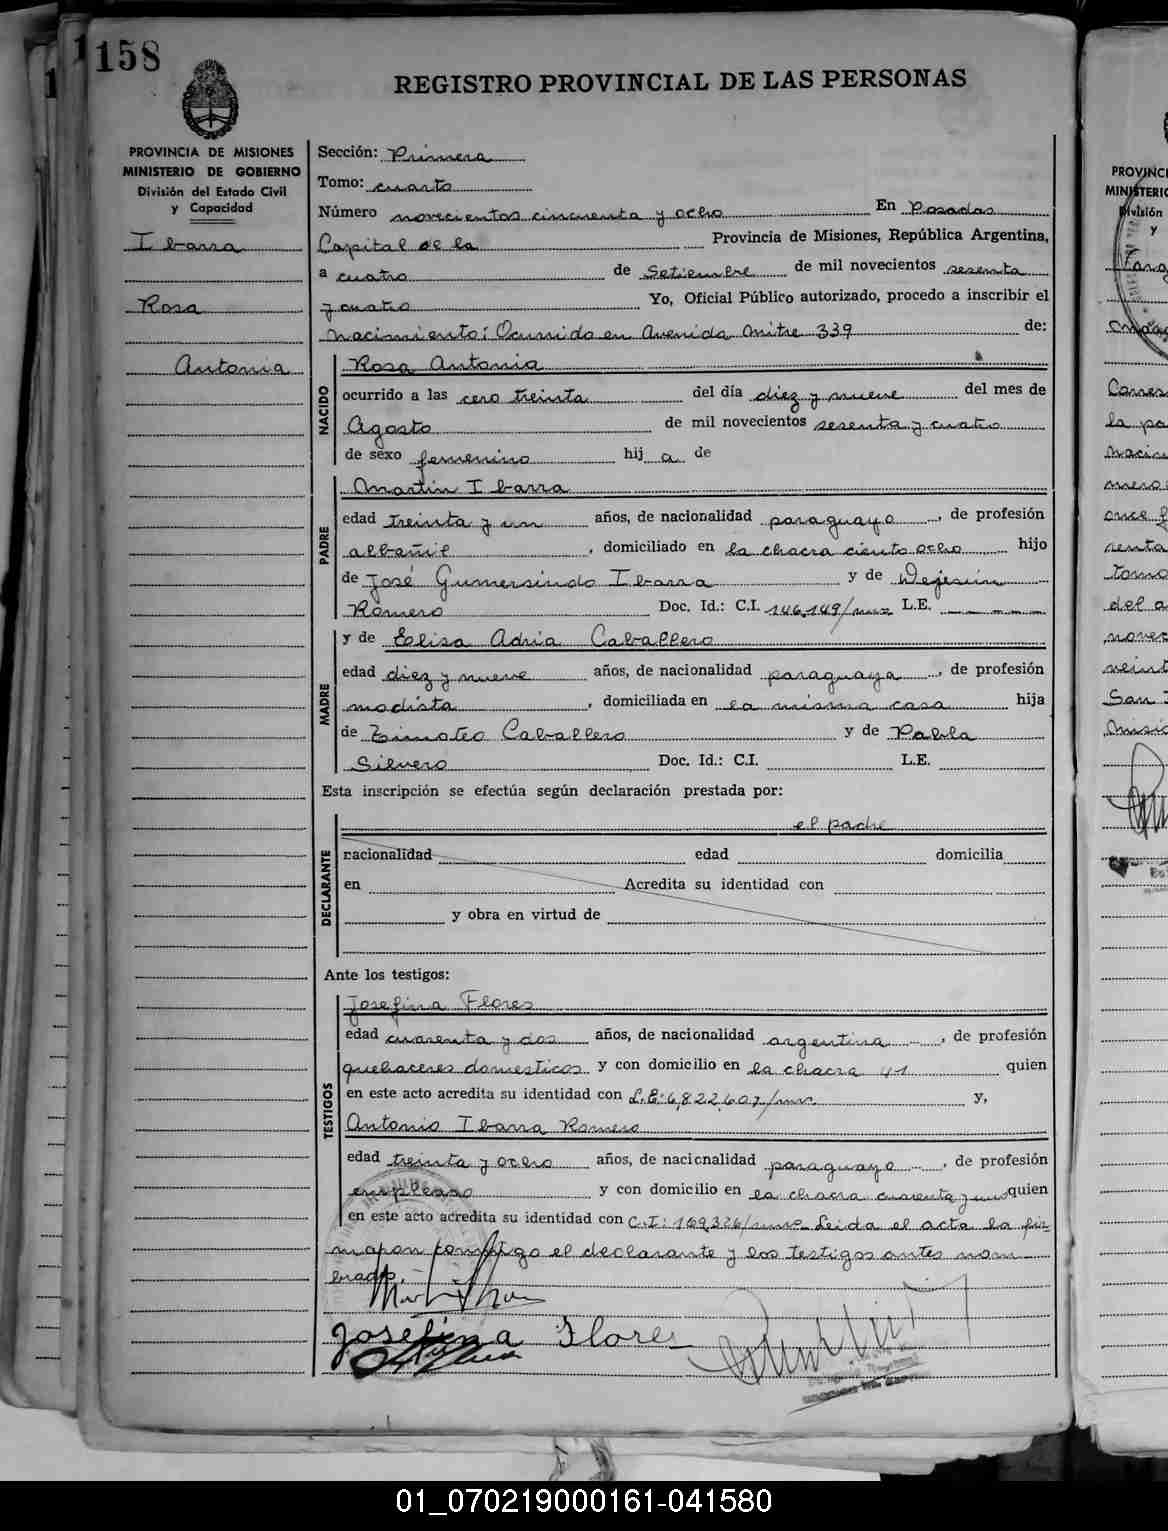 158
REGISTRO PROVINCIAL DE LAS PERSONAS
PROVINCIA DE MISIONES
MINISTERIO DE GOBIERNO
División del Estado Civil
y Capacidad
Ibarra
Rosa
Antonia
Sección: Primera
Tomo: cuarto
Número novecientos cincuenta y ocho En Posadas
Capital de la Provincia de Misiones, República Argentina,
a cuatro de Setiembre de mil novecientos sesenta
y cuatro Yo, Oficial Público autorizado, procedo a inscribir el
nacimiento: Ocurrido en Avenida Mitre 339 de:
NACIDO
Rosa Antonia
ocurrido a las cero treinta del día diez y nueve del mes de
Agosto de mil novecientos sesenta y cuatro
de sexo femenino hij a de
PADRE
Martin Ibarra
edad treinta y un años, de nacionalidad paraguayo, de profesión
albañil, domiciliado en la chacra ciento ocho hijo
de José Gumersindo Ibarra y de Dejesús
Romero Doc. Id.: C.I. 146.149/mns L.E.
MADRE
y de Elisa Adria Caballero
edad diez y nueve años, de nacionalidad paraguaya, de profesión
modista, domiciliada en la misma casa hija
de Timoteo Caballero y de Pabla
Silvero Doc. Id.: C.I. L.E.
Esta inscripción se efectúa según declaración prestada por:
DECLARANTE
el padre
nacionalidad edad domicilia
en Acredita su identidad con
y obra en virtud de
Ante los testigos:
TESTIGOS
Josefina Flores
edad cuarenta y dos años, de nacionalidad argentina, de profesión
quehaceres domesticos y con domicilio en la chacra 41 quien
en este acto acredita su identidad con L.E: 6,822,607/mns y,
Antonio Ibarra Romero
edad treinta y ocho años, de nacionalidad paraguayo, de profesión
empleado y con domicilio en la chacra cuarenta y uno quien
en este acto acredita su identidad con C.I: 169,326/mns- Leida el acta la fir-
maron conmigo el declarante y los testigos antes nom-
brados.
Josefina Flores
PROVINCI
MINISTERIO
División
y
01_070219000161-041580